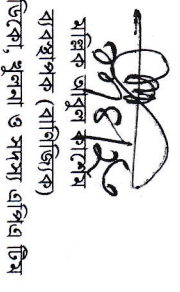 মল্লিক আবুল কাশেম
ব্যবস্থাপক (বাণিজ্যিক)
ডিকো, খুলনা ও সদস্য এপিএ টিম